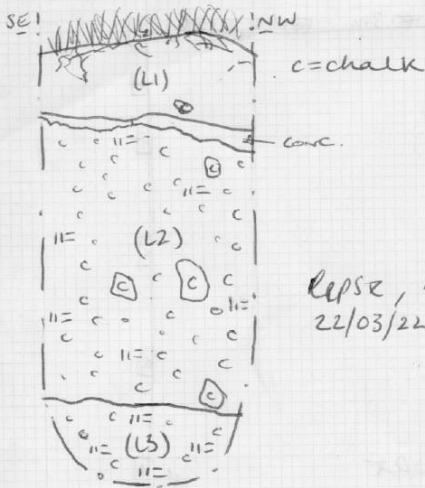 SE
NW
c=chalk
(L1)
conc.
(L2)
22/03/22
(L3)